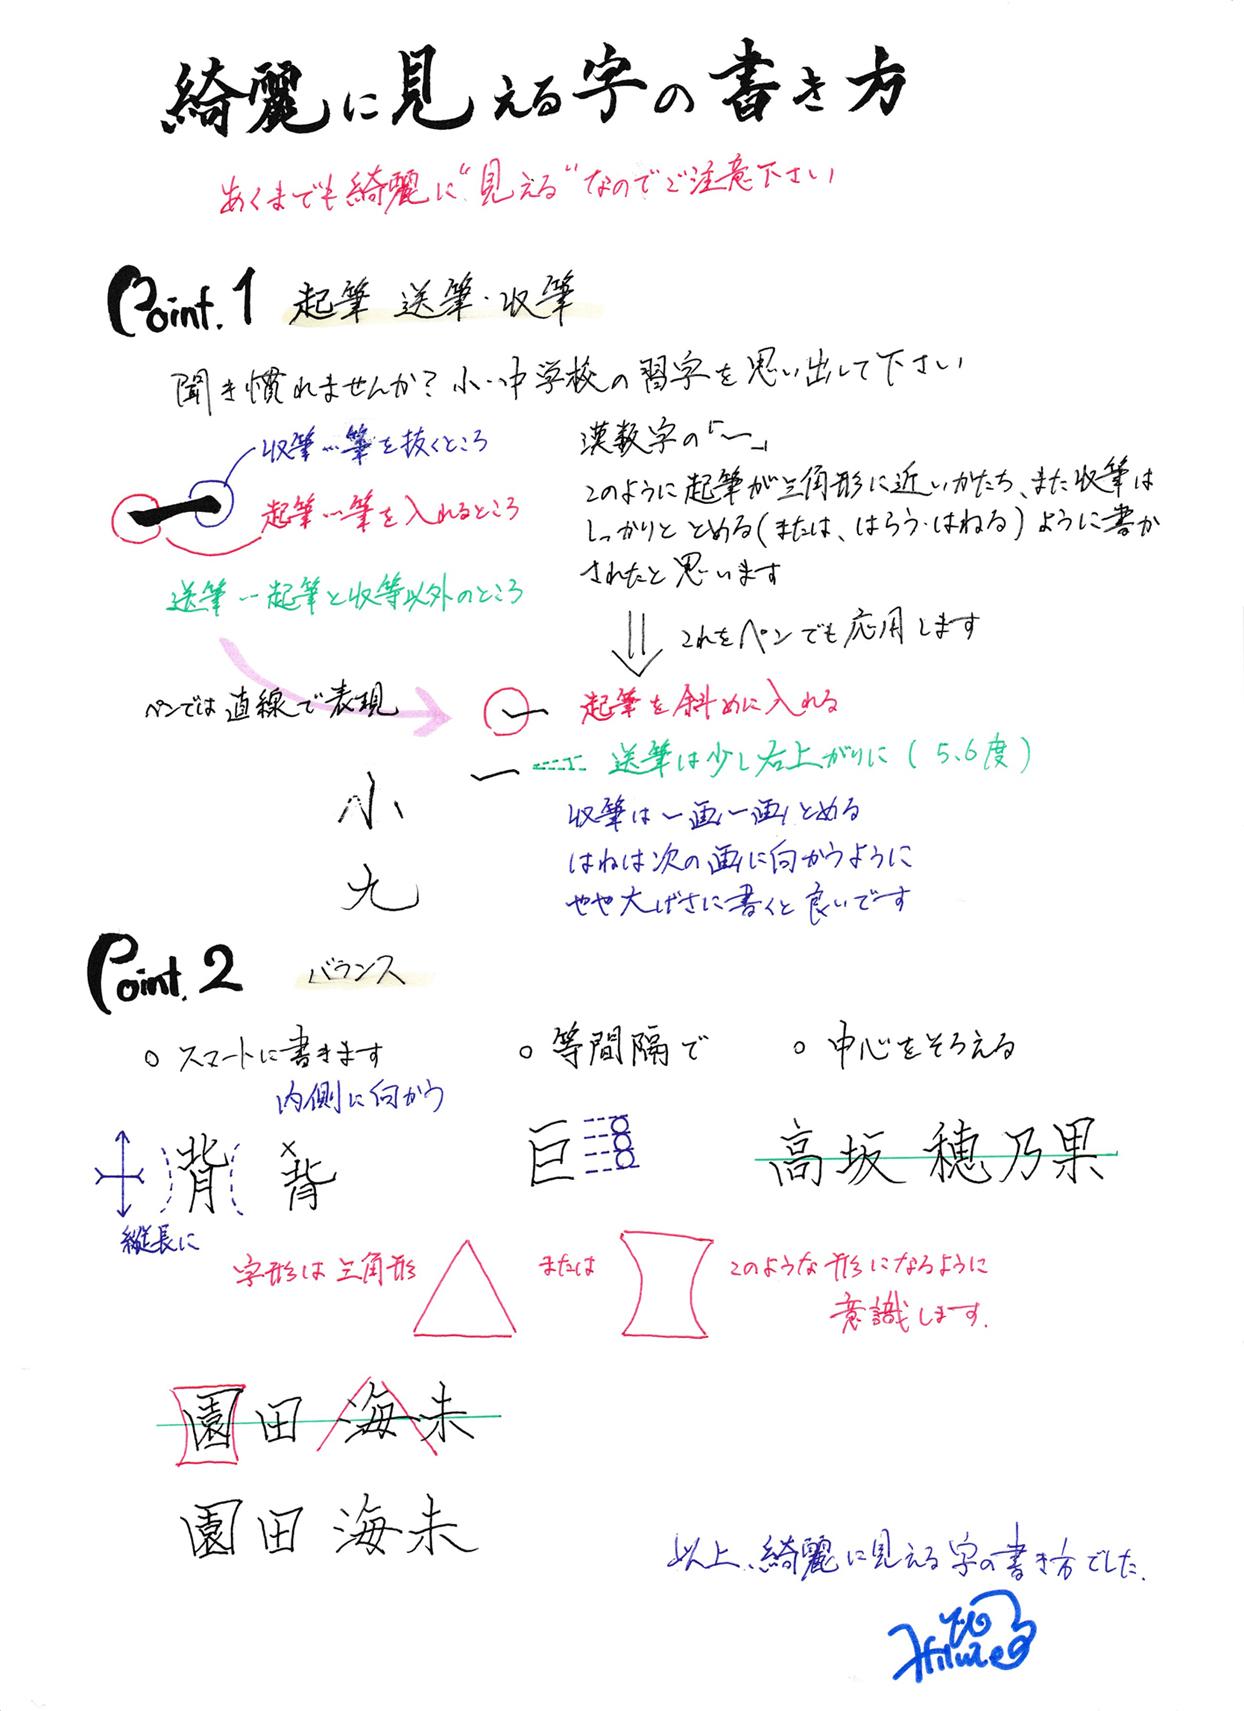 綺麗に見える字の書き方
あくまでも綺麗に"見える"なのでご注意下さい
Point.1 起筆 送筆・収筆
聞き慣れませんか?小・中学校の習字を思い出して下さい
収筆…筆を抜くところ
起筆…筆を入れるところ
送筆…起筆と収筆以外のところ
漢数字の「一」
このように起筆が三角形に近いかたち、また収筆は
しっかりと とめる(または、はらう・はねる)ように書か
されたと思います
これをペンでも応用します
ペンでは直線で表現
一
起筆を斜めに入れる
一
送筆は少し右上がりに(5.6度)
小
九
収筆は一画一画とめる
はねは次の画に向かうように
やや大げさに書くと良いです
Point.2 バランス
○ スマートに書きます
内側に向かう
背
×
背
縦長に
○ 等間隔で
巨
○ 中心をそろえる
高坂 穂乃果
字形は三角形
または
このような形になるように
意識します.
園田 海未
園田 海未
以上、綺麗に見える字の書き方でした.